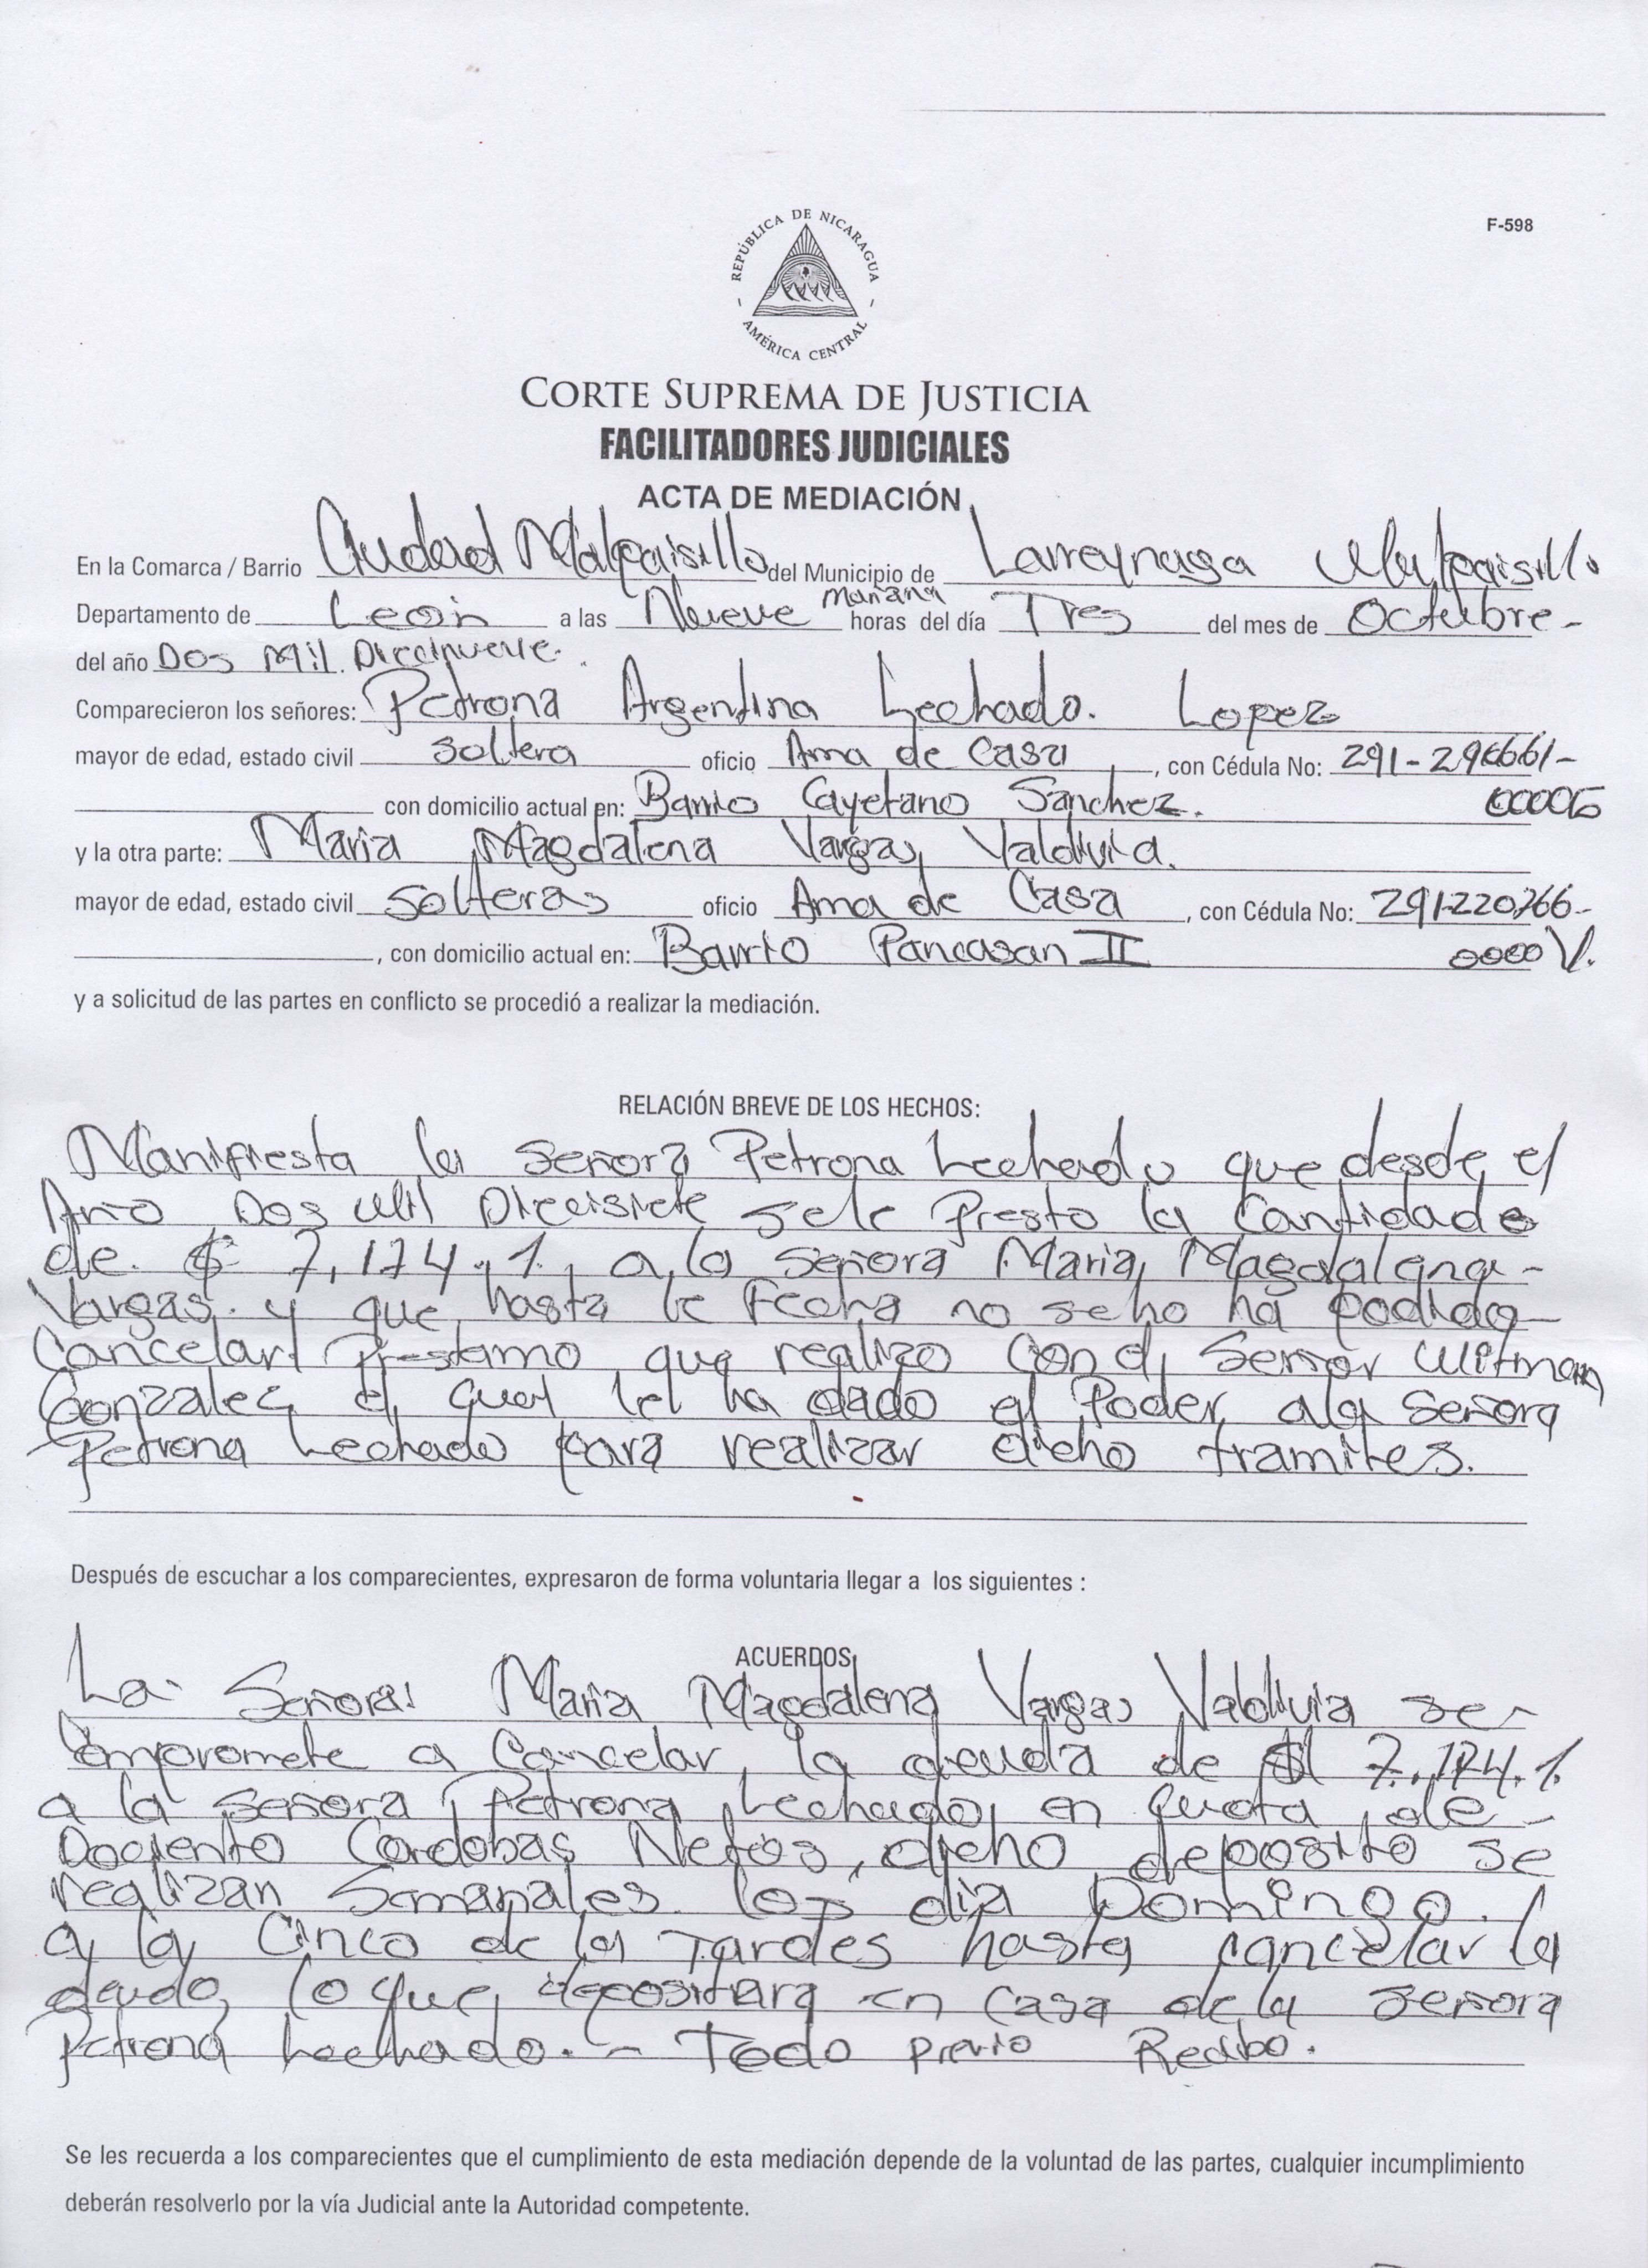 F-598
REPÚBLICA DE NICARAGUA
AMÉRICA CENTRAL
CORTE SUPREMA DE JUSTICIA
FACILITADORES JUDICIALES
ACTA DE MEDIACIÓN
En la Comarca / Barrio Ciudad Malpaisillo del Municipio de Larreynaga Malpaisillo
Mañana
Departamento de León a las Nueve horas del día Tres del mes de Octubre -
del año Dos Mil Diecinueve.
Comparecieron los señores: Petrona Argentina Lechado. Lopez
mayor de edad, estado civil soltera oficio Ama de Casa, con Cédula No: 291-
con domicilio actual en: Barrio Cayetano Sanchez.
y la otra parte: Maria Magdalena Vargas Valdivia.
mayor de edad, estado civil Solteras oficio Ama de Casa, con Cédula No: 291-220766-
, con domicilio actual en: Barrio Pancasan II 0000 V.
y a solicitud de las partes en conflicto se procedió a realizar la mediación.
RELACIÓN BREVE DE LOS HECHOS:
Manifiesta la señora Petrona Lechado que desde el
Año Dos Mil Diecisiete se le Presto la Cantidad
de. $ 7,174.1. a la señora Maria Magdalena -
Vargas. y que hasta la Fecha no se ha podido -
Cancelar Prestamo que realizo con el Señor Witman
Gonzalez el cual le ha dado el Poder a la Señora
Petrona Lechado para realizar dicho tramites.
Después de escuchar a los comparecientes, expresaron de forma voluntaria llegar a los siguientes :
ACUERDOS
La Señora: Maria Magdalena Vargas Valdivia se -
Compromete a Cancelar la deuda de $ 7.174.1.
a la señora Petrona Lechado en quota de -
Dociento Cordobas Netos, dicho deposito se
realizan Semanales los dia Domingo.
a la Cinco de la Tardes hasta cancelar la
deuda, lo que depositara en Casa de la señora
Petrona Lechado. - Todo previo Recibo.
Se les recuerda a los comparecientes que el cumplimiento de esta mediación depende de la voluntad de las partes, cualquier incumplimiento
deberán resolverlo por la vía Judicial ante la Autoridad competente.